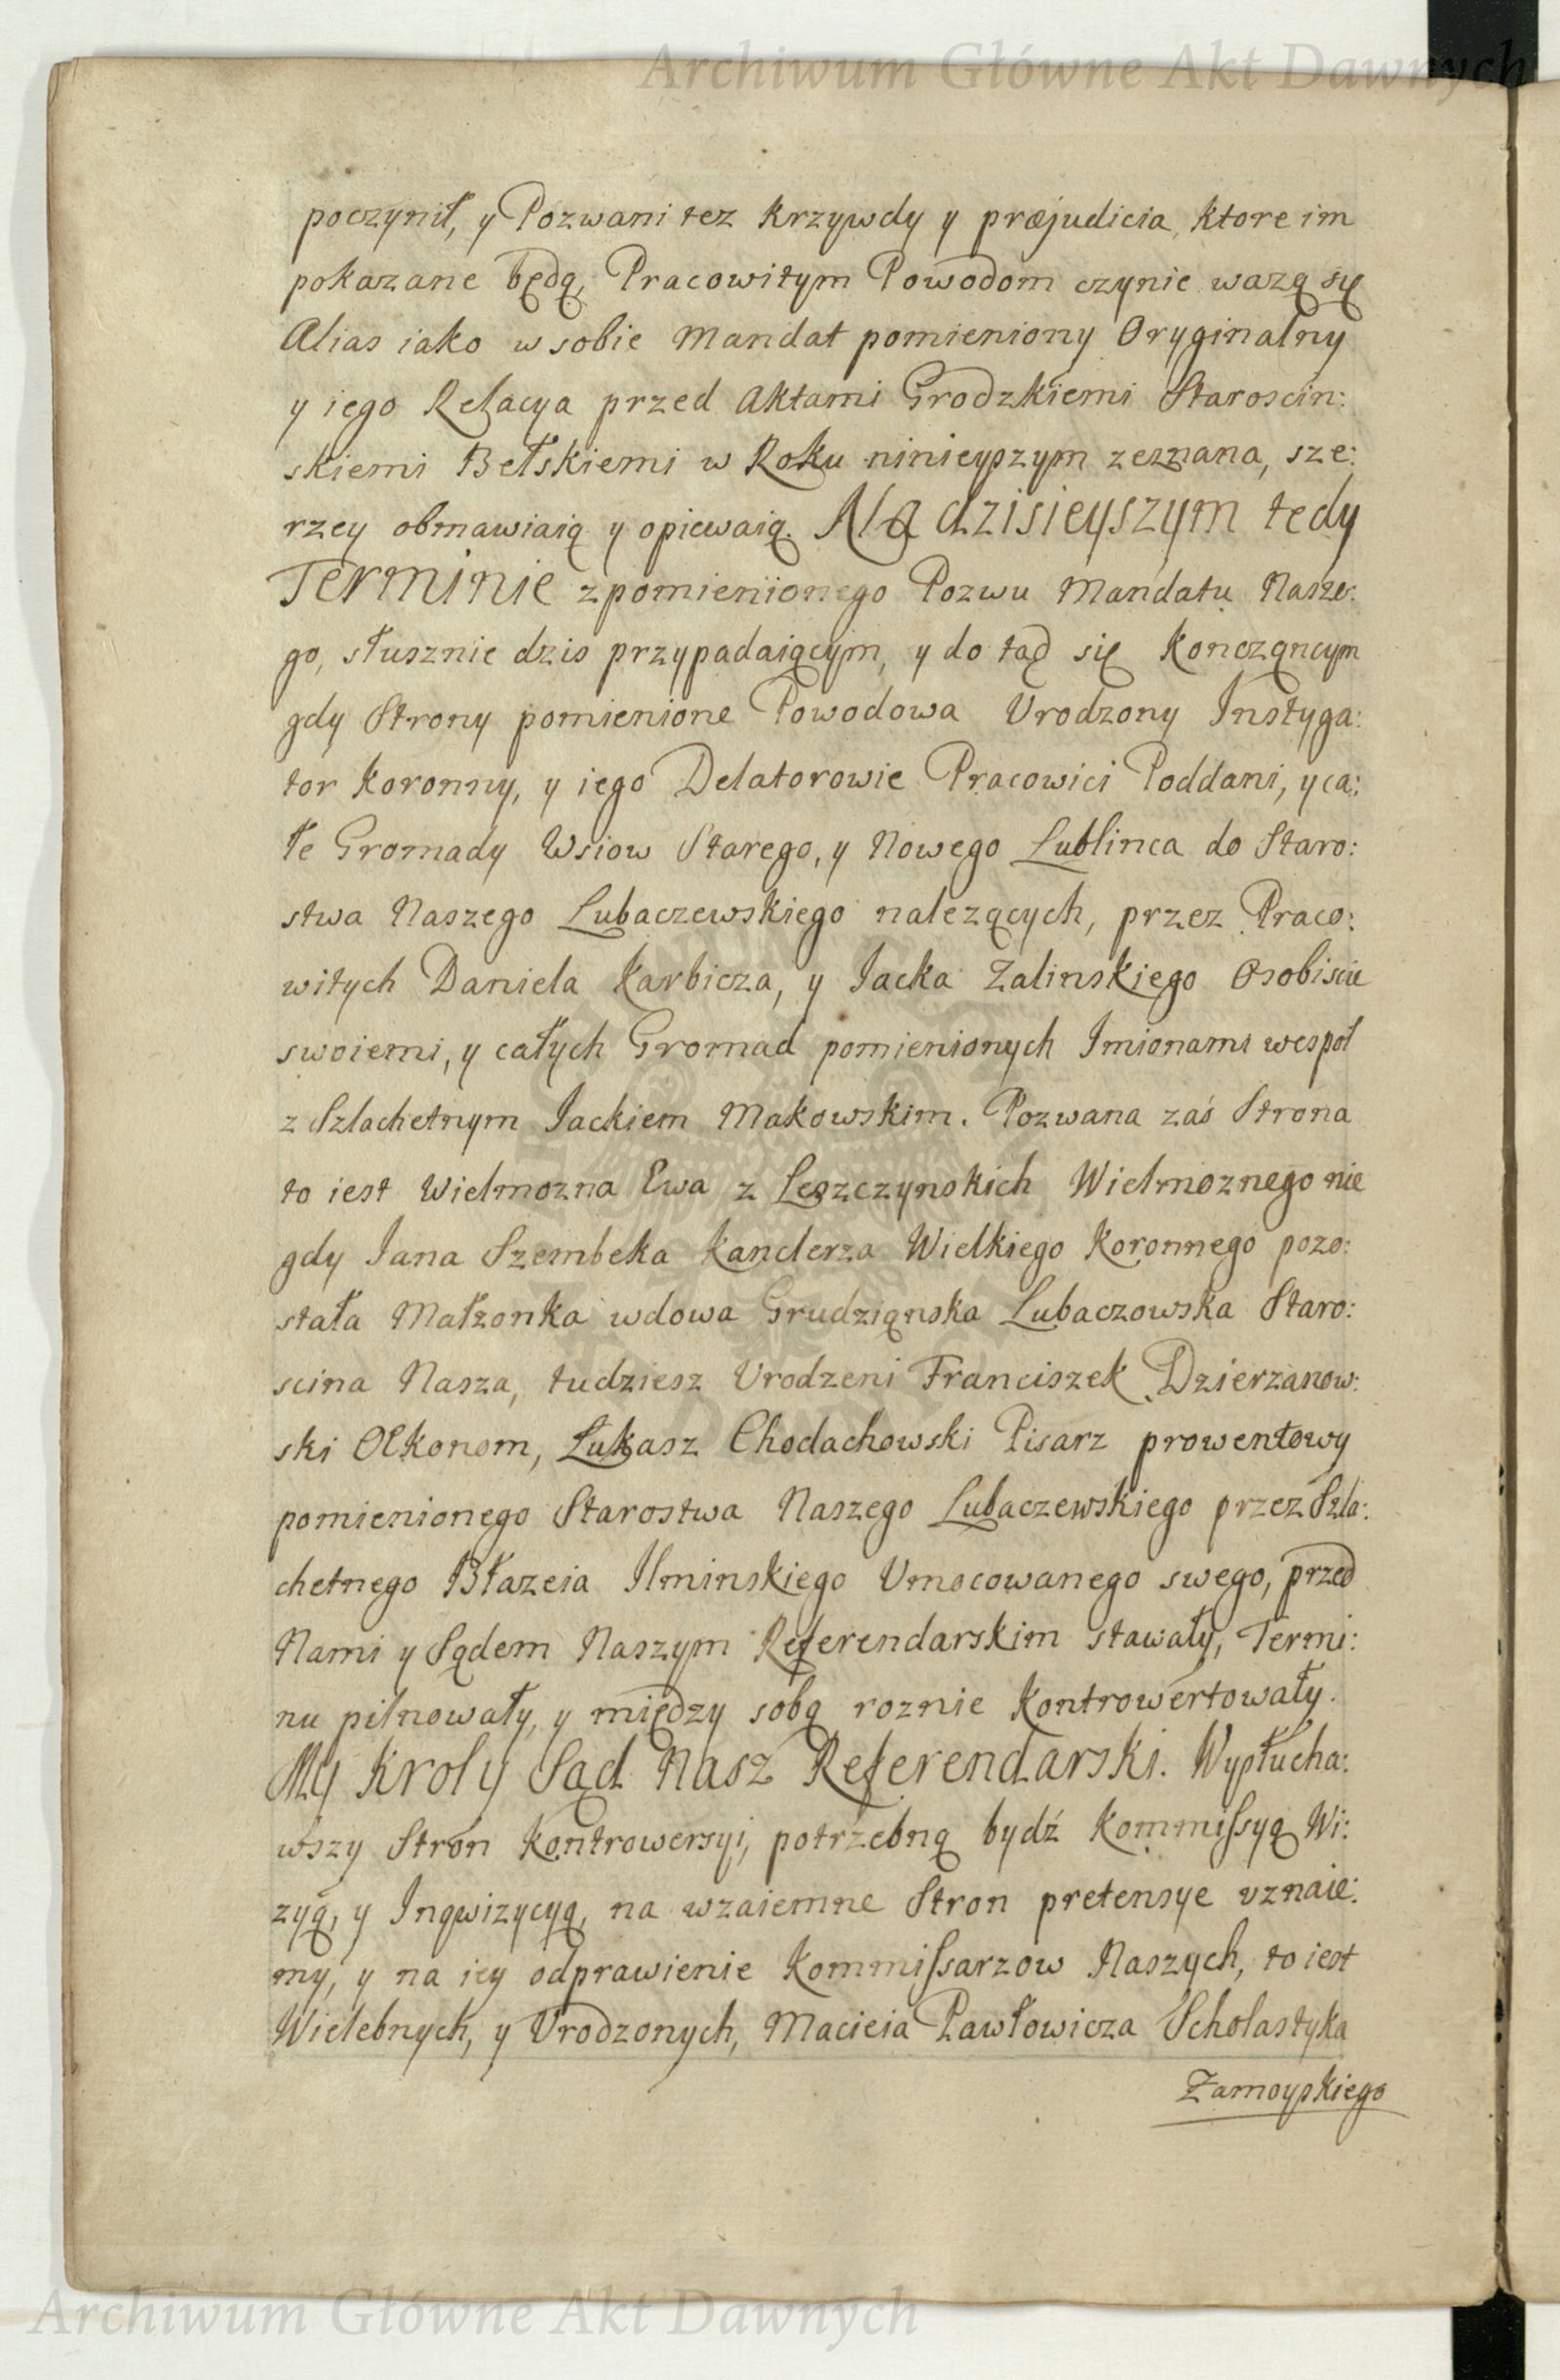 Archiwum Główne Akt Dawnych
poczynił, y Pozwani tez krzywdy y præjudicia, ktore im
pokazane będą, Pracowitym Powodom czynic wazą się
Alias iako w sobie Mandat pomieniony Oryginalny
y iego Relacya przed Aktami Grodzkiemi Staroscin:
skiemi Bełskiemi w Roku ninieyszym zeznana, sze:
rzey obmawiaią y opiewaią. Na dzisieyszym tedy
Terminie z pomienionego Pozwu Mandatu Nasze:
go, słusznie dzis przypadaiącym, y do tąd się konczącym
gdy Strony pomienione Powodowa Vrodzony Instyga:
tor koronny, y iego Delatorowie Pracowici Poddani, y ca:
łe Gromady Wsiow Starego, y Nowego Lublinca do Staro:
stwa Naszego Lubaczewskiego nalezących, przez Praco:
witych Daniela karbicza, y Jacka Zalinskiego Osobiscie
swoiemi, y całych Gromad pomienionych Imionami wespoł
z Szlachetnym Jackiem Makowskim. Pozwana zaś Strona
to iest Wielmozna Ewa z Leszczynskich Wielmoznego nie
gdy Jana Szembeka kanclerza Wielkiego koronnego pozo:
stała Małzonka wdowa Grudziąnska Lubaczowska Staro:
scina Nasza, tudziesz Vrodzeni Franciszek Dzierzanow:
ski OEkonom, Łukasz Chodachowski Pisarz prowentowy
pomienionego Starostwa Naszego Lubaczewskiego przez Szla:
chetnego Błazeia Ilminskiego Vmocowanego swego, przed
Nami y Sądem Naszym Referendarskim stawały, Termi:
nu pilnowały, y między sobą roznie kontrowertowały.
My krol y Sąd Nasz Referendarski. Wysłucha:
wszy Stron kontrowersyi, potrzebną bydź kommissyą Wi:
zyą, y Inqwizycyą, na wzaiemne Stron pretensye vznaie:
my, y na iey odprawienie kommissarzow Naszych, to iest
Wielebnych, y Vrodzonych, Macieia Pawłowicza Scholastyka
Zamoyskiego
Archiwum Główne Akt Dawnych